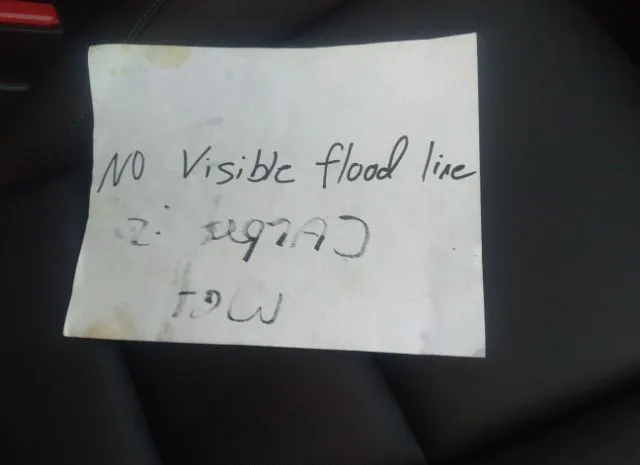 NO Visible flood line
CArpet is
Wet